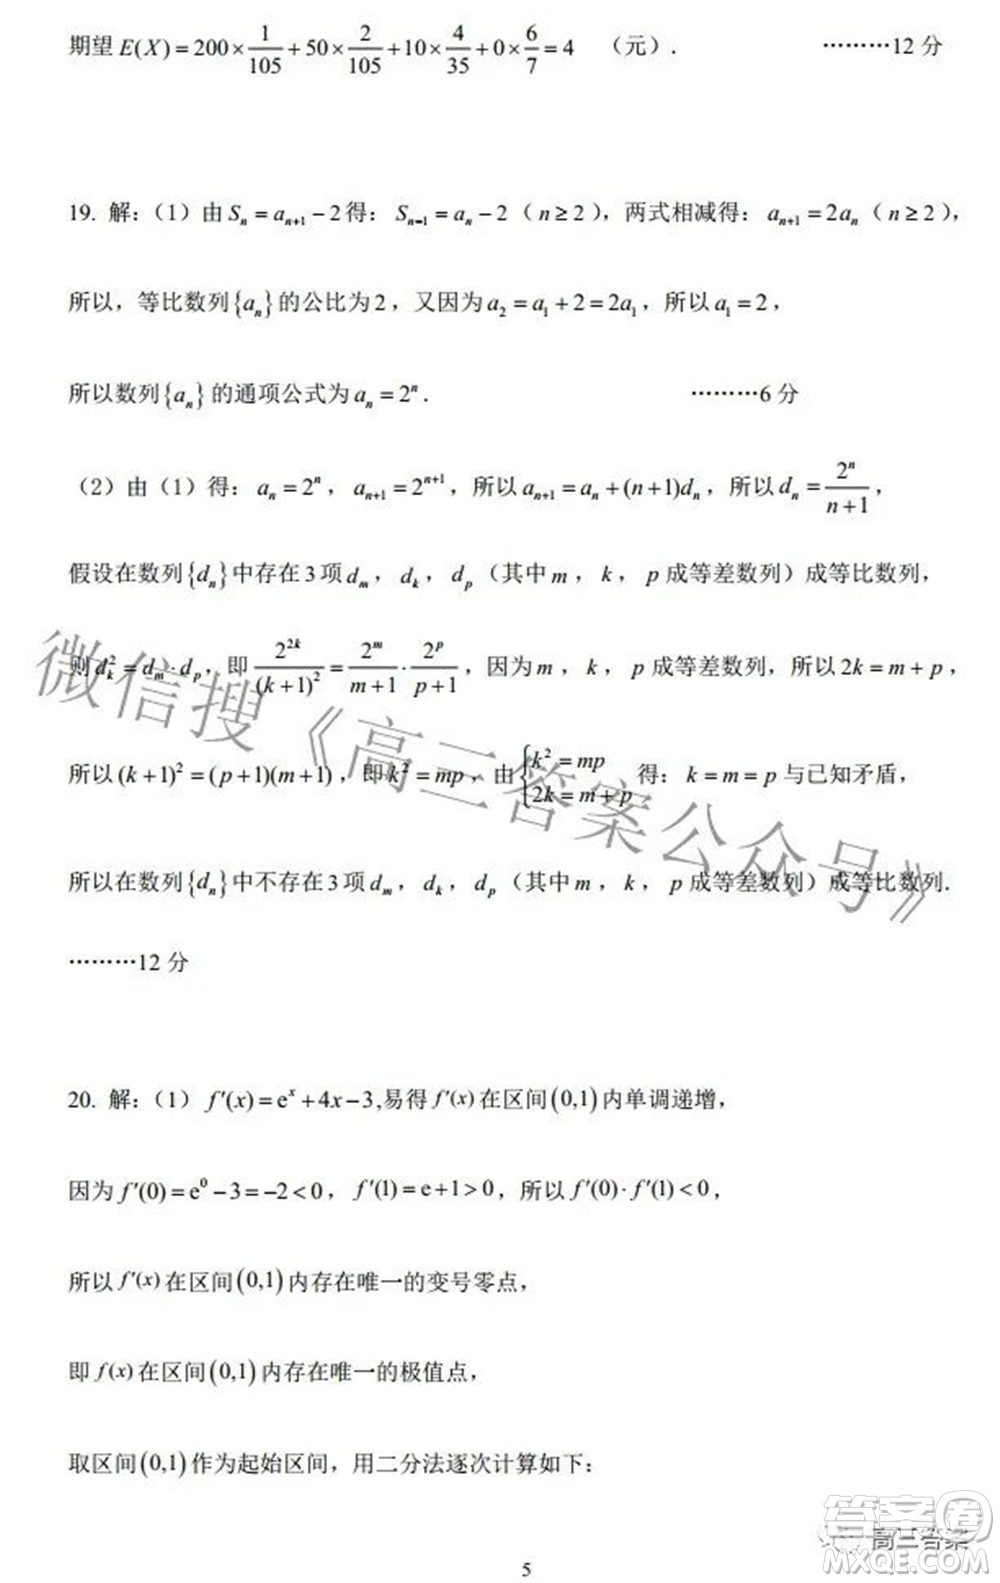 期望 E(X)=200×1/105+50×2/105+10×4/35+0×6/7=4 （元）. ………12 分
19. 解：（1）由 Sₙ=aₙ₊₁−2 得： Sₙ₋₁=aₙ−2（n≥2），两式相减得： aₙ₊₁=2aₙ（n≥2），
所以，等比数列{aₙ}的公比为 2，又因为 a₂=a₁+2=2a₁，所以 a₁=2，
所以数列{aₙ}的通项公式为 aₙ=2ⁿ. ………6 分
（2）由（1）得： aₙ=2ⁿ， aₙ₊₁=2ⁿ⁺¹，所以 aₙ₊₁=aₙ+(n+1)dₙ，所以 dₙ=2ⁿ/(n+1)，
假设在数列{dₙ}中存在 3 项 dₘ， dₖ， dₚ（其中 m， k， p 成等差数列）成等比数列，
则 dₖ²=dₘ·dₚ，即 2²ᵏ/(k+1)²=2ᵐ/(m+1)·2ᵖ/(p+1)，因为 m， k， p 成等差数列，所以 2k=m+p，
所以 (k+1)²=(p+1)(m+1)，即 k²=mp，由{k²=mp 2k=m+p 得： k=m=p 与已知矛盾，
所以在数列{dₙ}中不存在 3 项 dₘ， dₖ， dₚ（其中 m， k， p 成等差数列）成等比数列.
………12 分
20. 解：（1） f′(x)=eˣ+4x−3,易得 f′(x) 在区间(0,1)内单调递增，
因为 f′(0)=e⁰−3=−2<0， f′(1)=e+1>0，所以 f′(0)·f′(1)<0，
所以 f′(x) 在区间(0,1)内存在唯一的变号零点，
即 f(x) 在区间(0,1)内存在唯一的极值点，
取区间(0,1)作为起始区间，用二分法逐次计算如下：
5
微信搜《高三答案公众号》
高三答案
答案圈
MXQE.COM